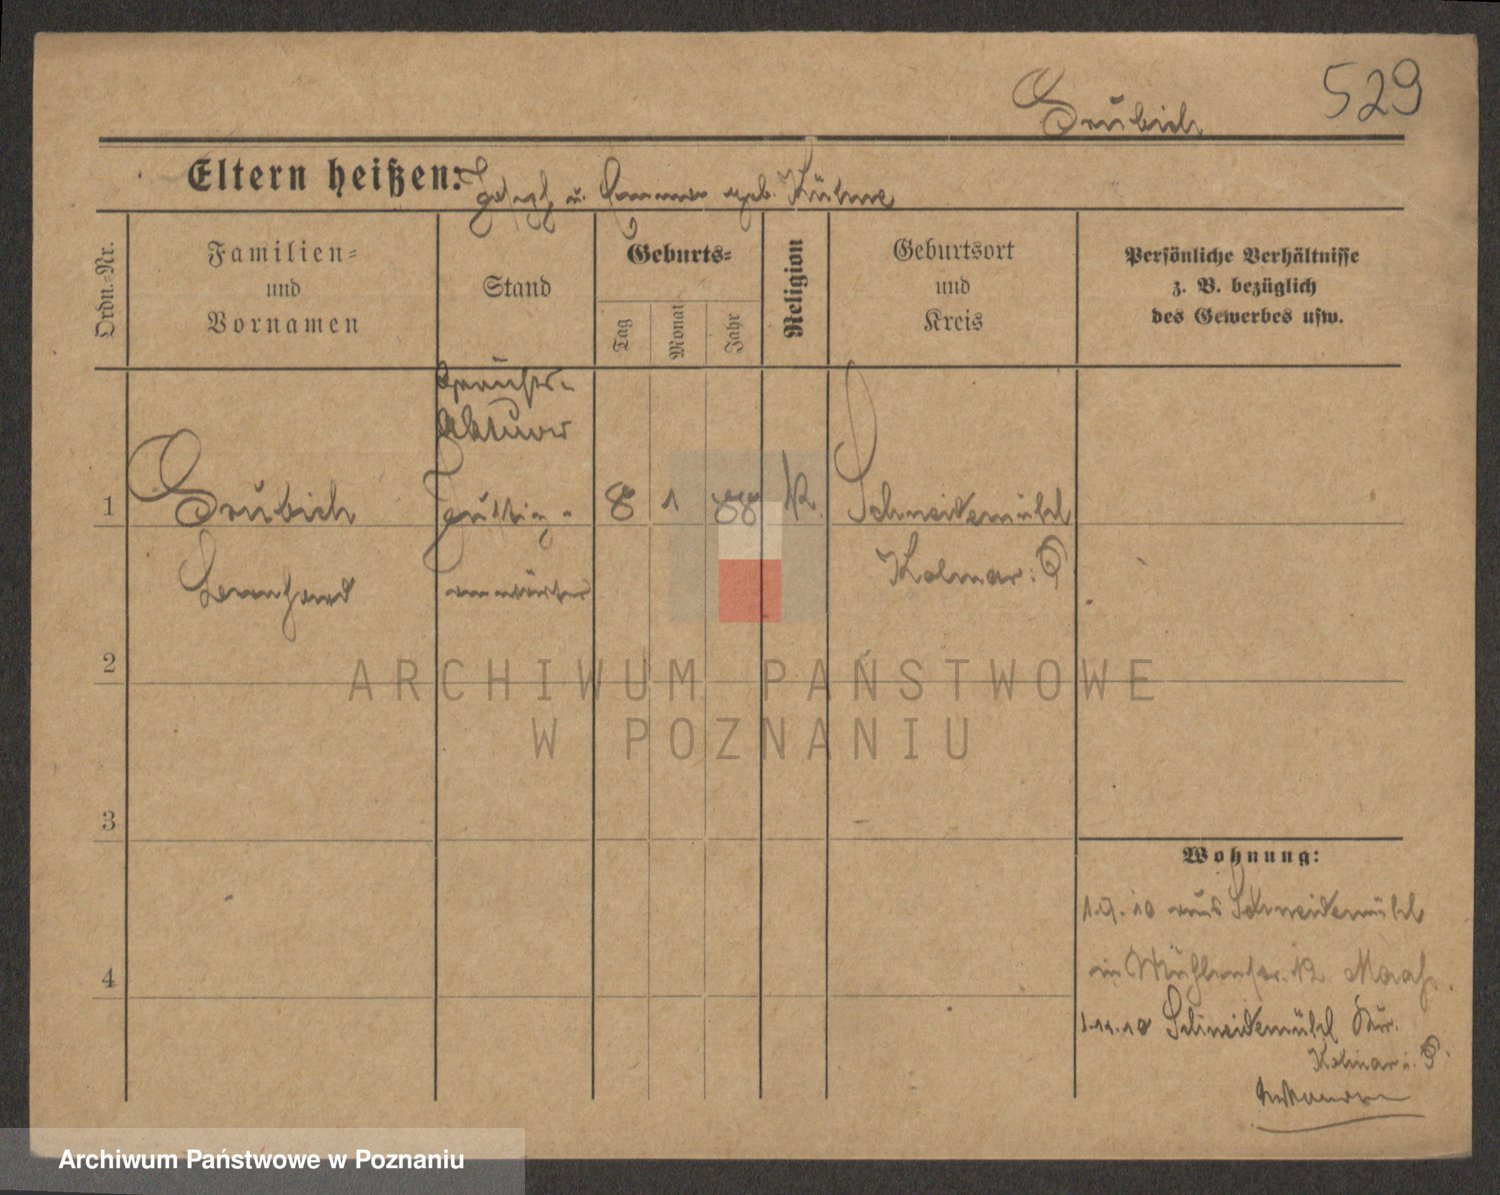 529
Grubich
Eltern heißen: Joseph u. geb. Kühne
Ordn.-Nr.
Familien-
und
Vornamen
Stand
Geburts-
Tag
Monat
Jahr
Religion
Geburtsort
und
Kreis
Persönliche Verhältnisse
z. B. bezüglich
des Gewerbes usw.
Gerichts-
Aktuar
1 Grubich 8 1 88 k. Schneidemühl
Bernhard anwärter Kolmar i. P
2
3
4
Wohnung:
1.9.10 aus Schneidemühl
in Mühlenstr. 12
1.11.10 Schneidemühl Kr.
Kolmar i. P.
ARCHIWUM PAŃSTWOWE
W POZNANIU
Archiwum Państwowe w Poznaniu